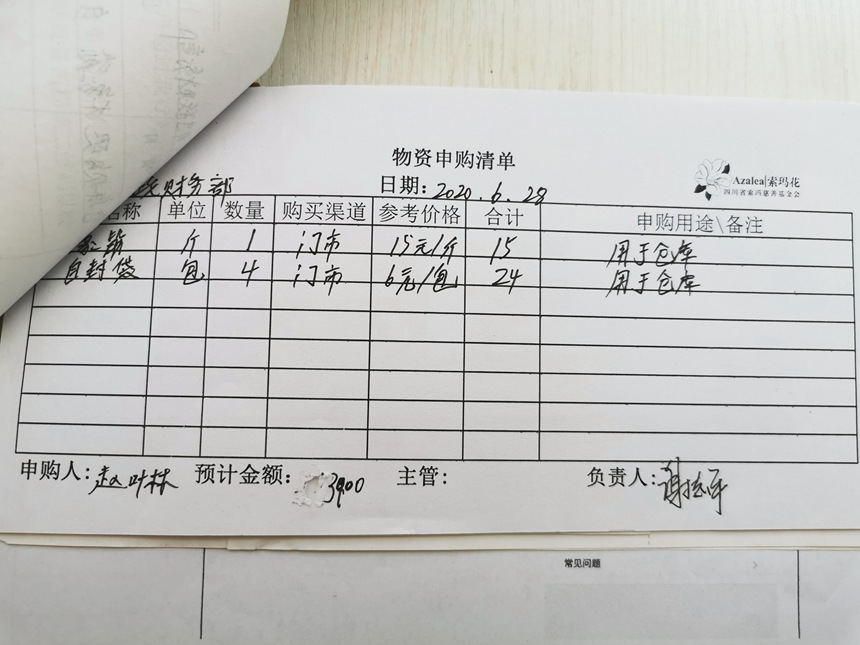 物资申购清单
Azalea|索玛花
四川省索玛慈善基金会
财务部 日期:2020.6.28
名称 单位 数量 购买渠道 参考价格 合计 申购用途\备注
斤 1 门市 15元/斤 15 用于仓库
自封袋 包 4 门市 6元/包 24 用于仓库
申购人:赵叶林 预计金额:39.00 主管: 负责人:
常见问题